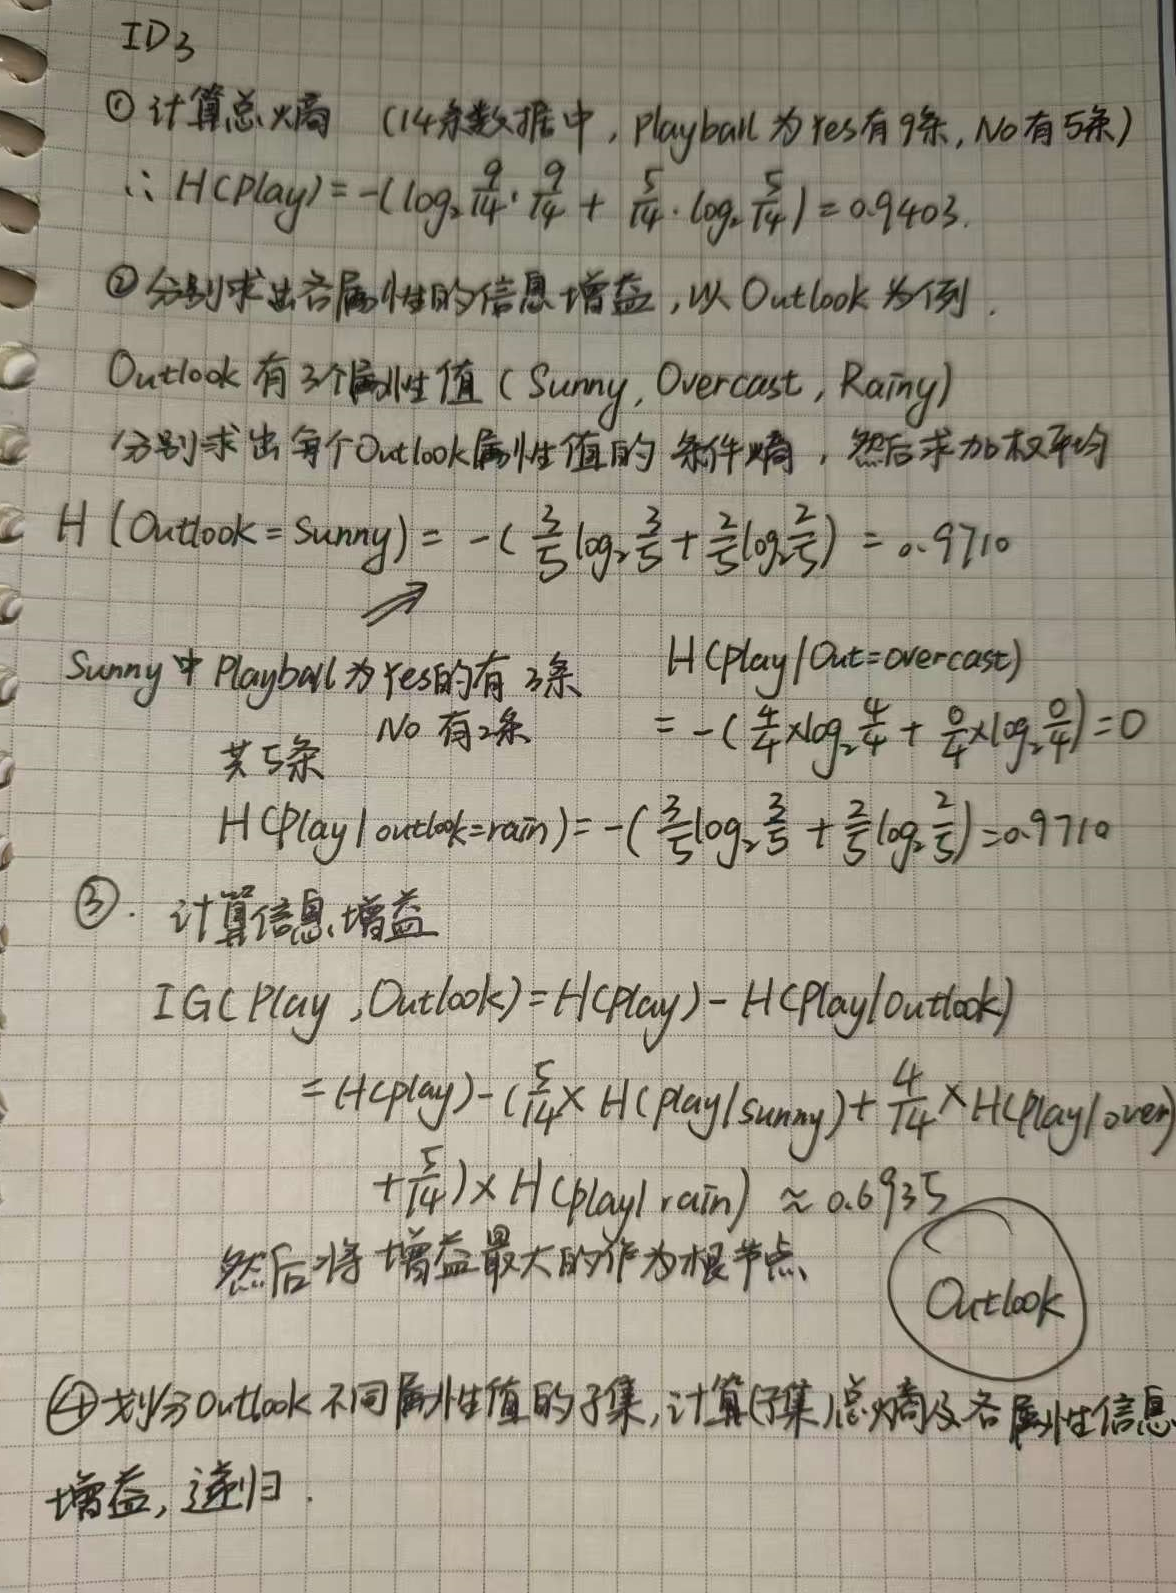 ID3
① 计算总熵 (14条数据中, playball 为 Yes有9条, No有5条)
∴ H(play) = -(log₂ 9/14 · 9/14 + 5/14 · log₂ 5/14) = 0.9403.
② 分别求出各属性的信息增益, 以 Outlook 为例.
Outlook 有3个属性值 (Sunny, Overcast, Rainy)
分别求出每个Outlook属性值的条件熵, 然后求加权平均
H (Outlook = Sunny) = -( 3/5 log₂ 3/5 + 2/5 log₂ 2/5 ) = 0.9710
Sunny 中 Playball 为 Yes的有 3条
No 有2条
共5条
H(play/Out=overcast)
= -( 4/4 × log₂ 4/4 + 0/4 × log₂ 0/4 ) = 0
H(Play | outlook=rain) = -( 3/5 log₂ 3/5 + 2/5 log₂ 2/5 ) = 0.9710
③. 计算信息增益
IG( Play , Outlook) = H(play) - H(Play/outlook)
= H(play) - ( 5/14 × H(play/sunny) + 4/14 × H(play/over)
+ 5/14 ) × H(play| rain) ≈ 0.6935
然后将增益最大的作为根节点
Outlook
④ 划分Outlook 不同属性值的子集, 计算(子集)总熵及各属性信息
增益, 递归.